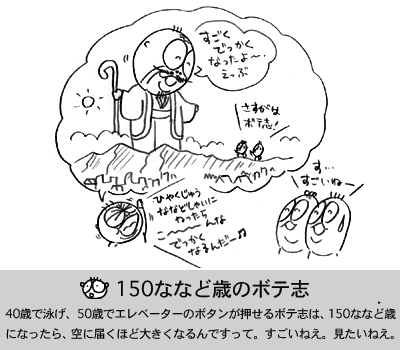 すごく
でっかく
なったよ〜.
えっぷ
さすがは
ボテ志!
ひゃくじゅう
ななどしゃいに
なったら
こ〜〜〜んな
でっかく
なるんだー♪
す…
すごいねー
150ななど歳のボテ志
40歳で泳げ、50歳でエレベーターのボタンが押せるボテ志は、150ななど歳
になったら、空に届くほど大きくなるんですって。すごいねえ。見たいねえ。